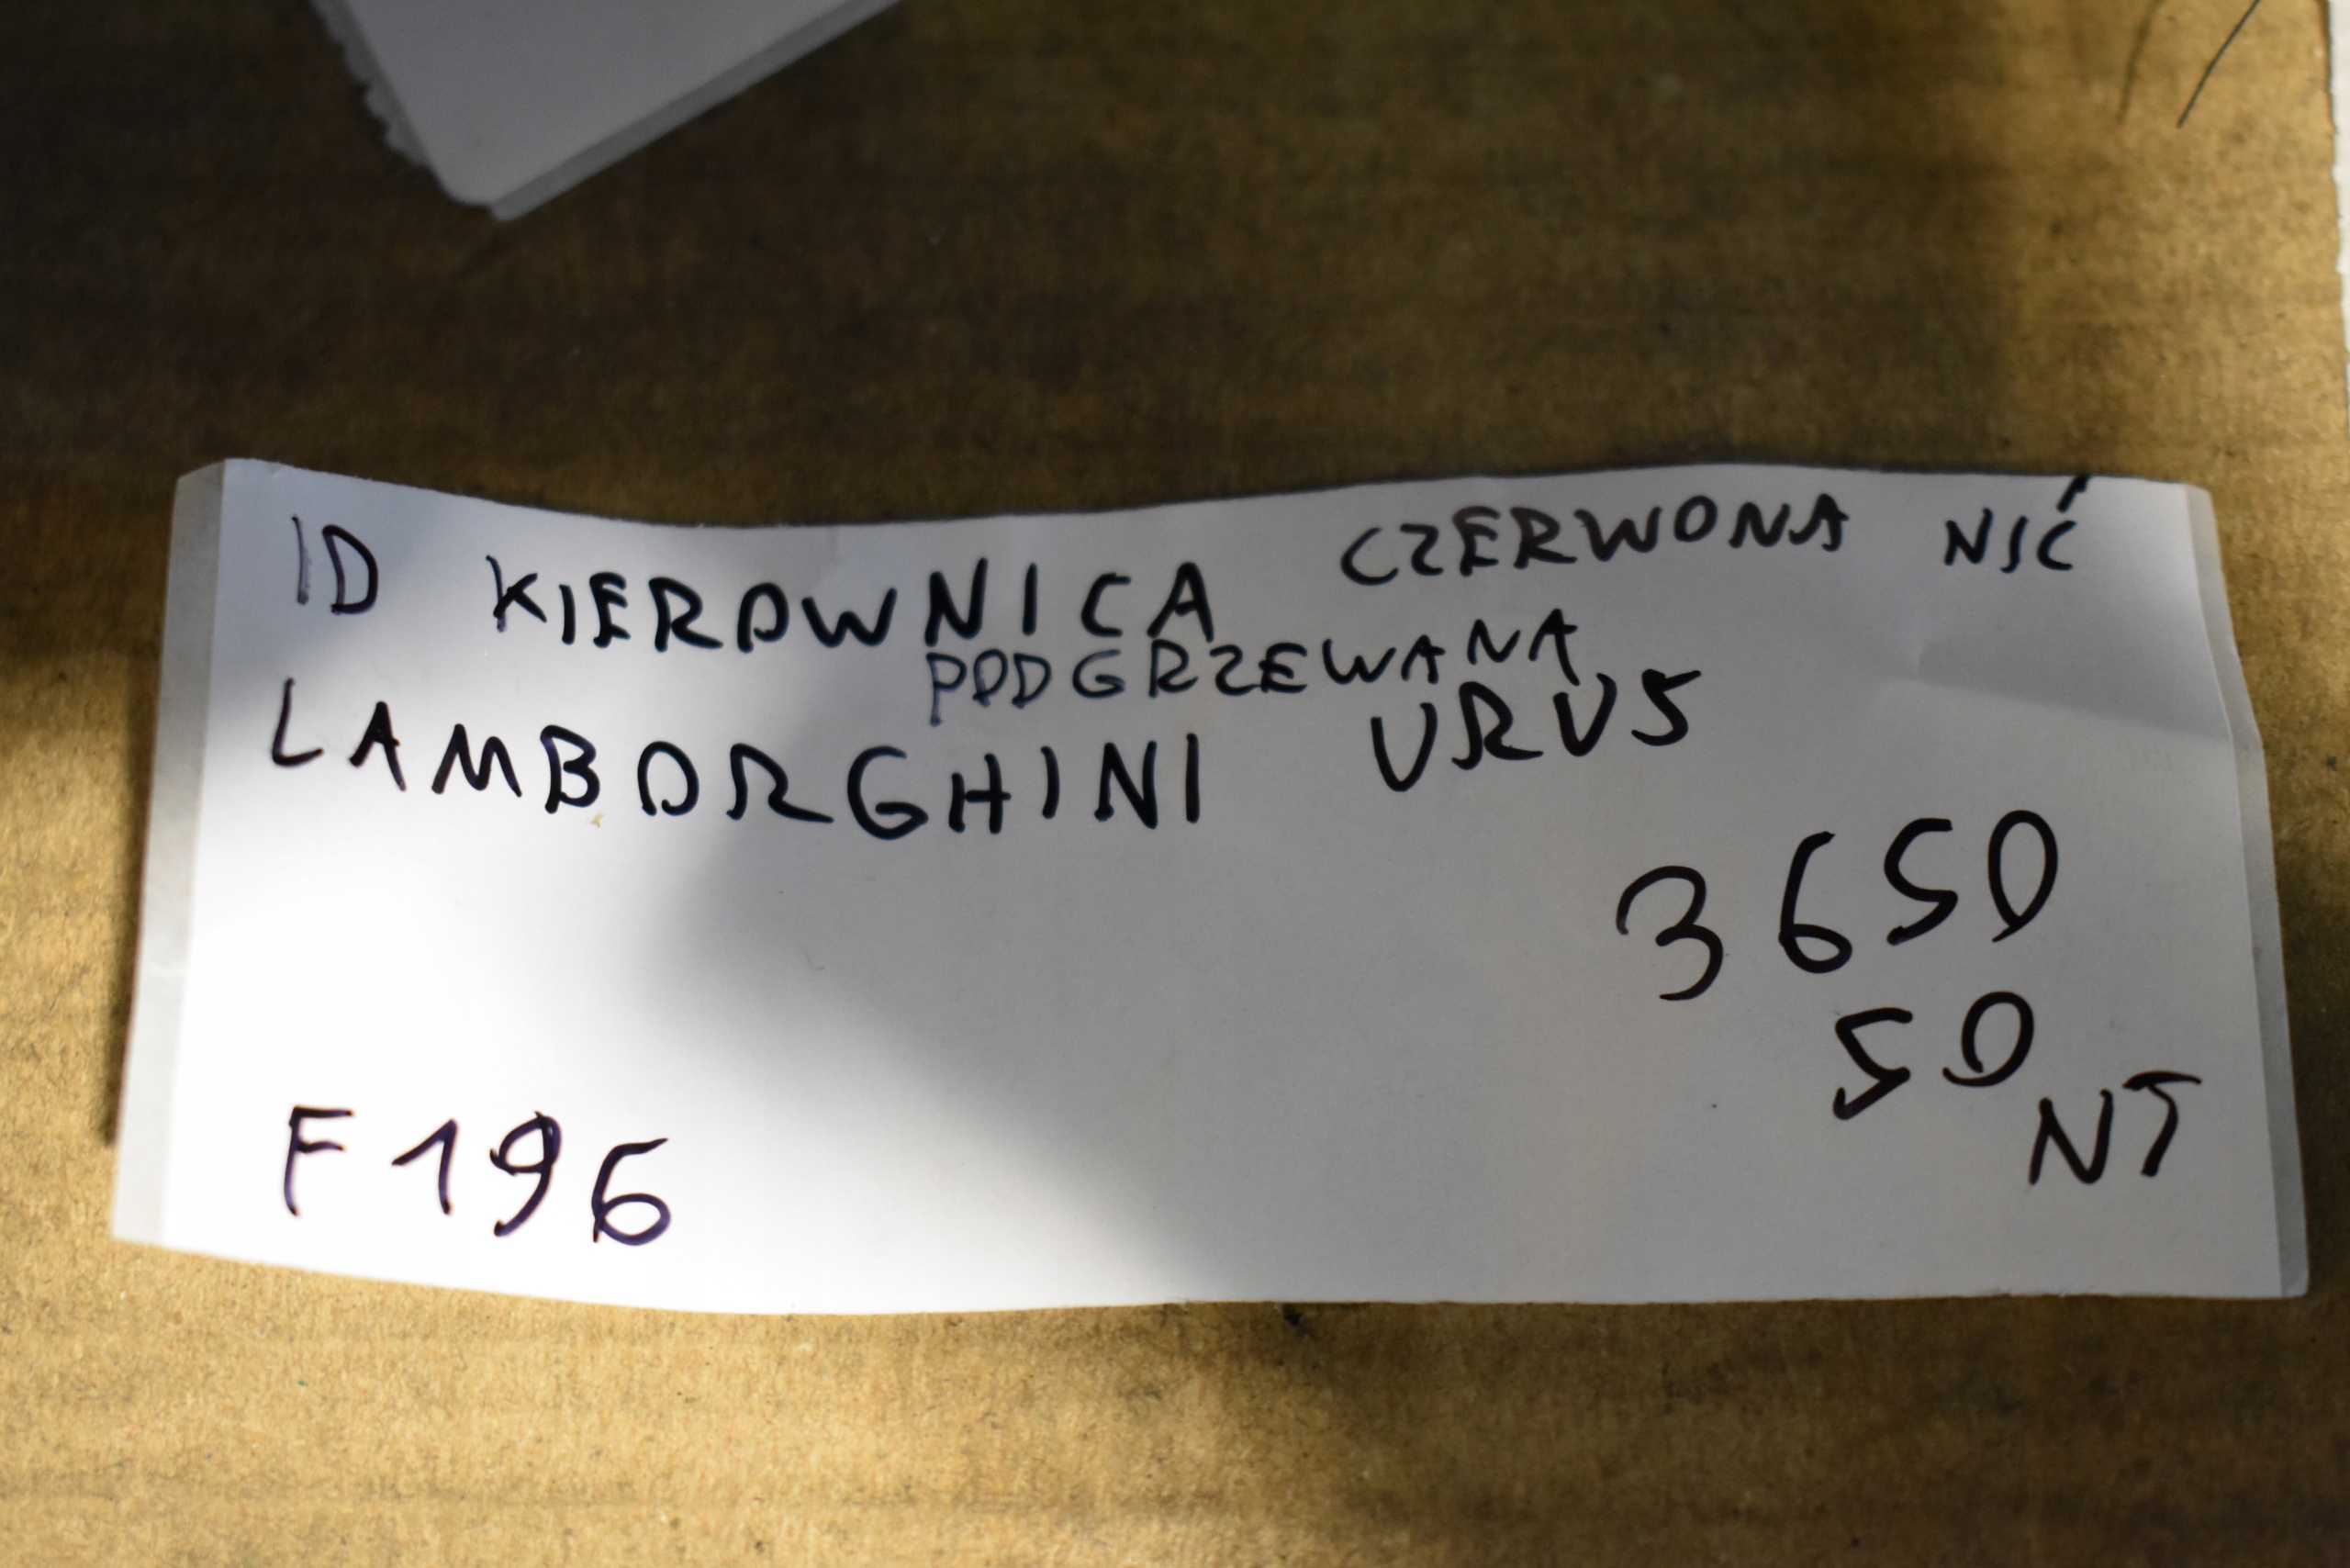 ID KIEROWNICA CZERWONA NIĆ
PODGRZEWANA
LAMBORGHINI URUS
3650
50
NT
F196